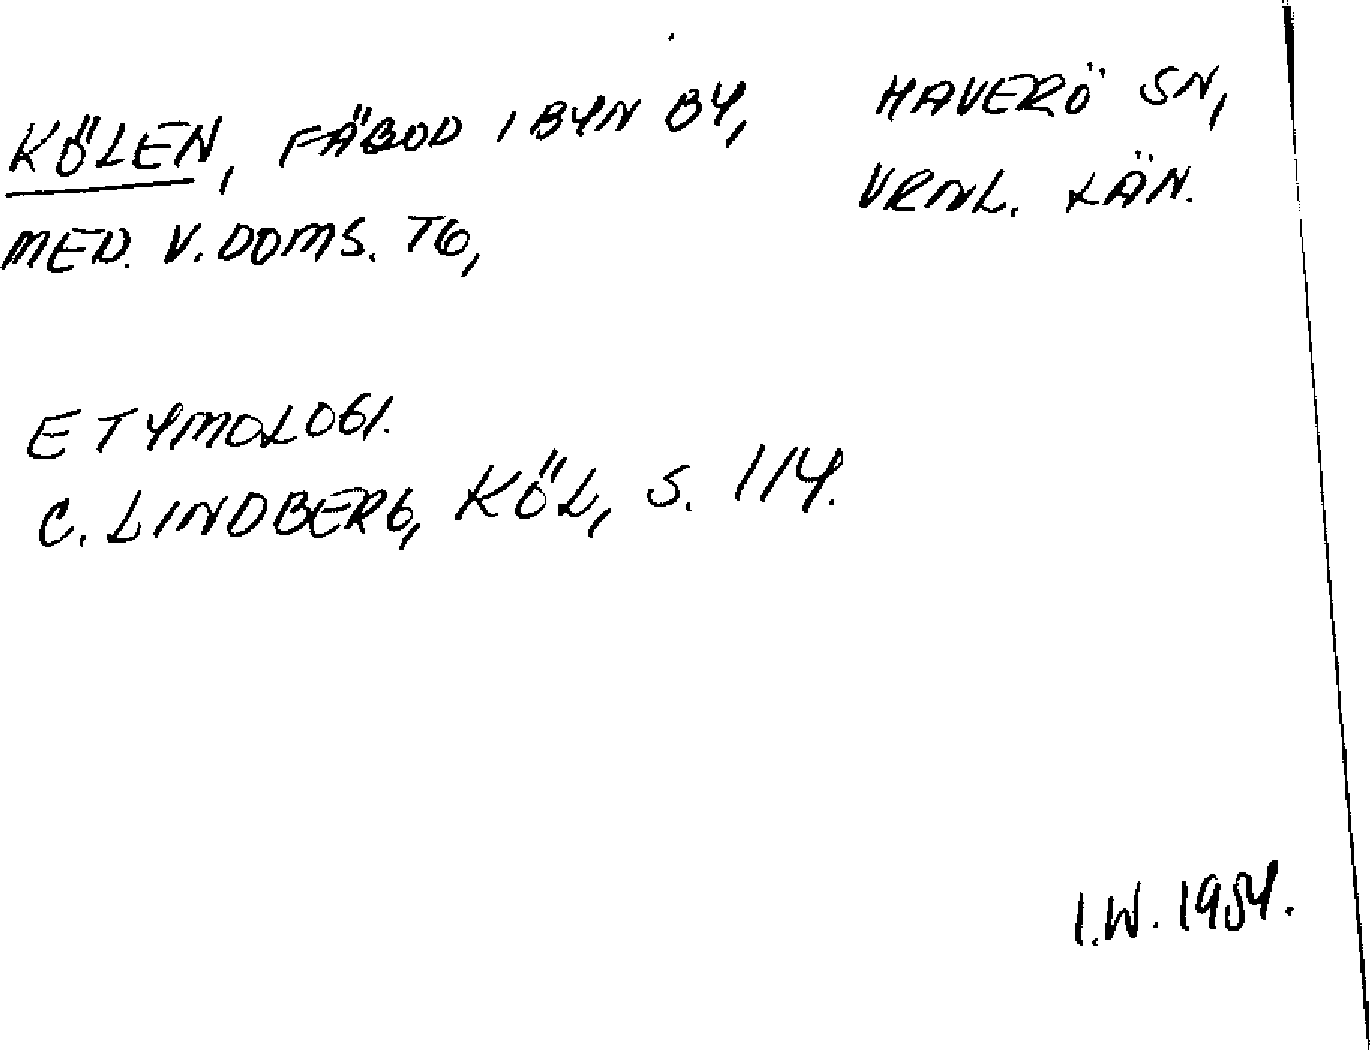 KÖLEN, FÄBOD I BYN BY, HAVERÖ SN,
MED. V. DOMS. TG, VRNL. LÄN.
ETYMOLOGI.
C. LINDBERG, KÖL, S. 114.
I.W. 1984.